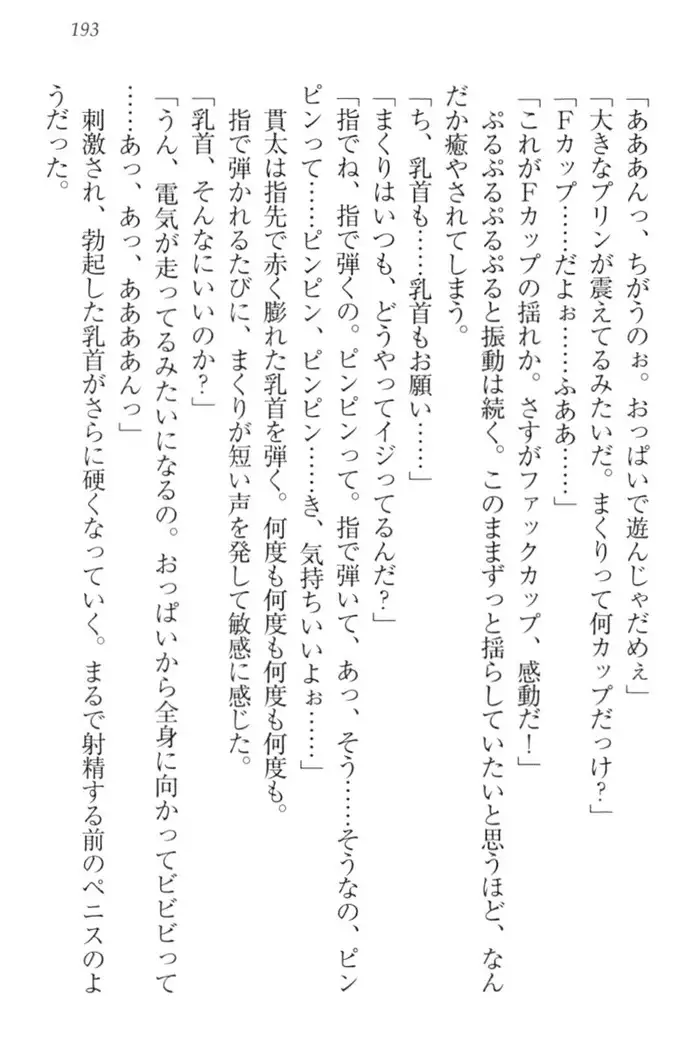 193
「あああんっ、ちがうのぉ。おっぱいで遊んじゃだめぇ」
「大きなプリンが震えてるみたいだ。まくりって何カップだっけ?」
「Fカップ……だよぉ……ふああ……」
「これがFカップの揺れか。さすがファックカップ、感動だ!」
ぷるぷるぷるぷると振動は続く。このままずっと揺らしていたいと思うほど、なん
だか癒やされてしまう。
「ち、乳首も……乳首もお願い……」
「まくりはいつも、どうやってイジってるんだ?」
「指でね、指で弾くの。ピンピンって。指で弾いて、あっ、そう……そうなの、ピン
ピンって……ピンピン、ピンピン……き、気持ちいいよぉ……」
貫太は指先で赤く膨れた乳首を弾く。何度も何度も何度も何度も。
指で弾かれるたびに、まくりが短い声を発して敏感に感じた。
「乳首、そんなにいいのか?」
「うん、電気が走ってるみたいになるの。おっぱいから全身に向かってビビビって
……あっ、あっ、ああああんっ」
刺激され、勃起した乳首がさらに硬くなっていく。まるで射精する前のペニスのよ
うだった。